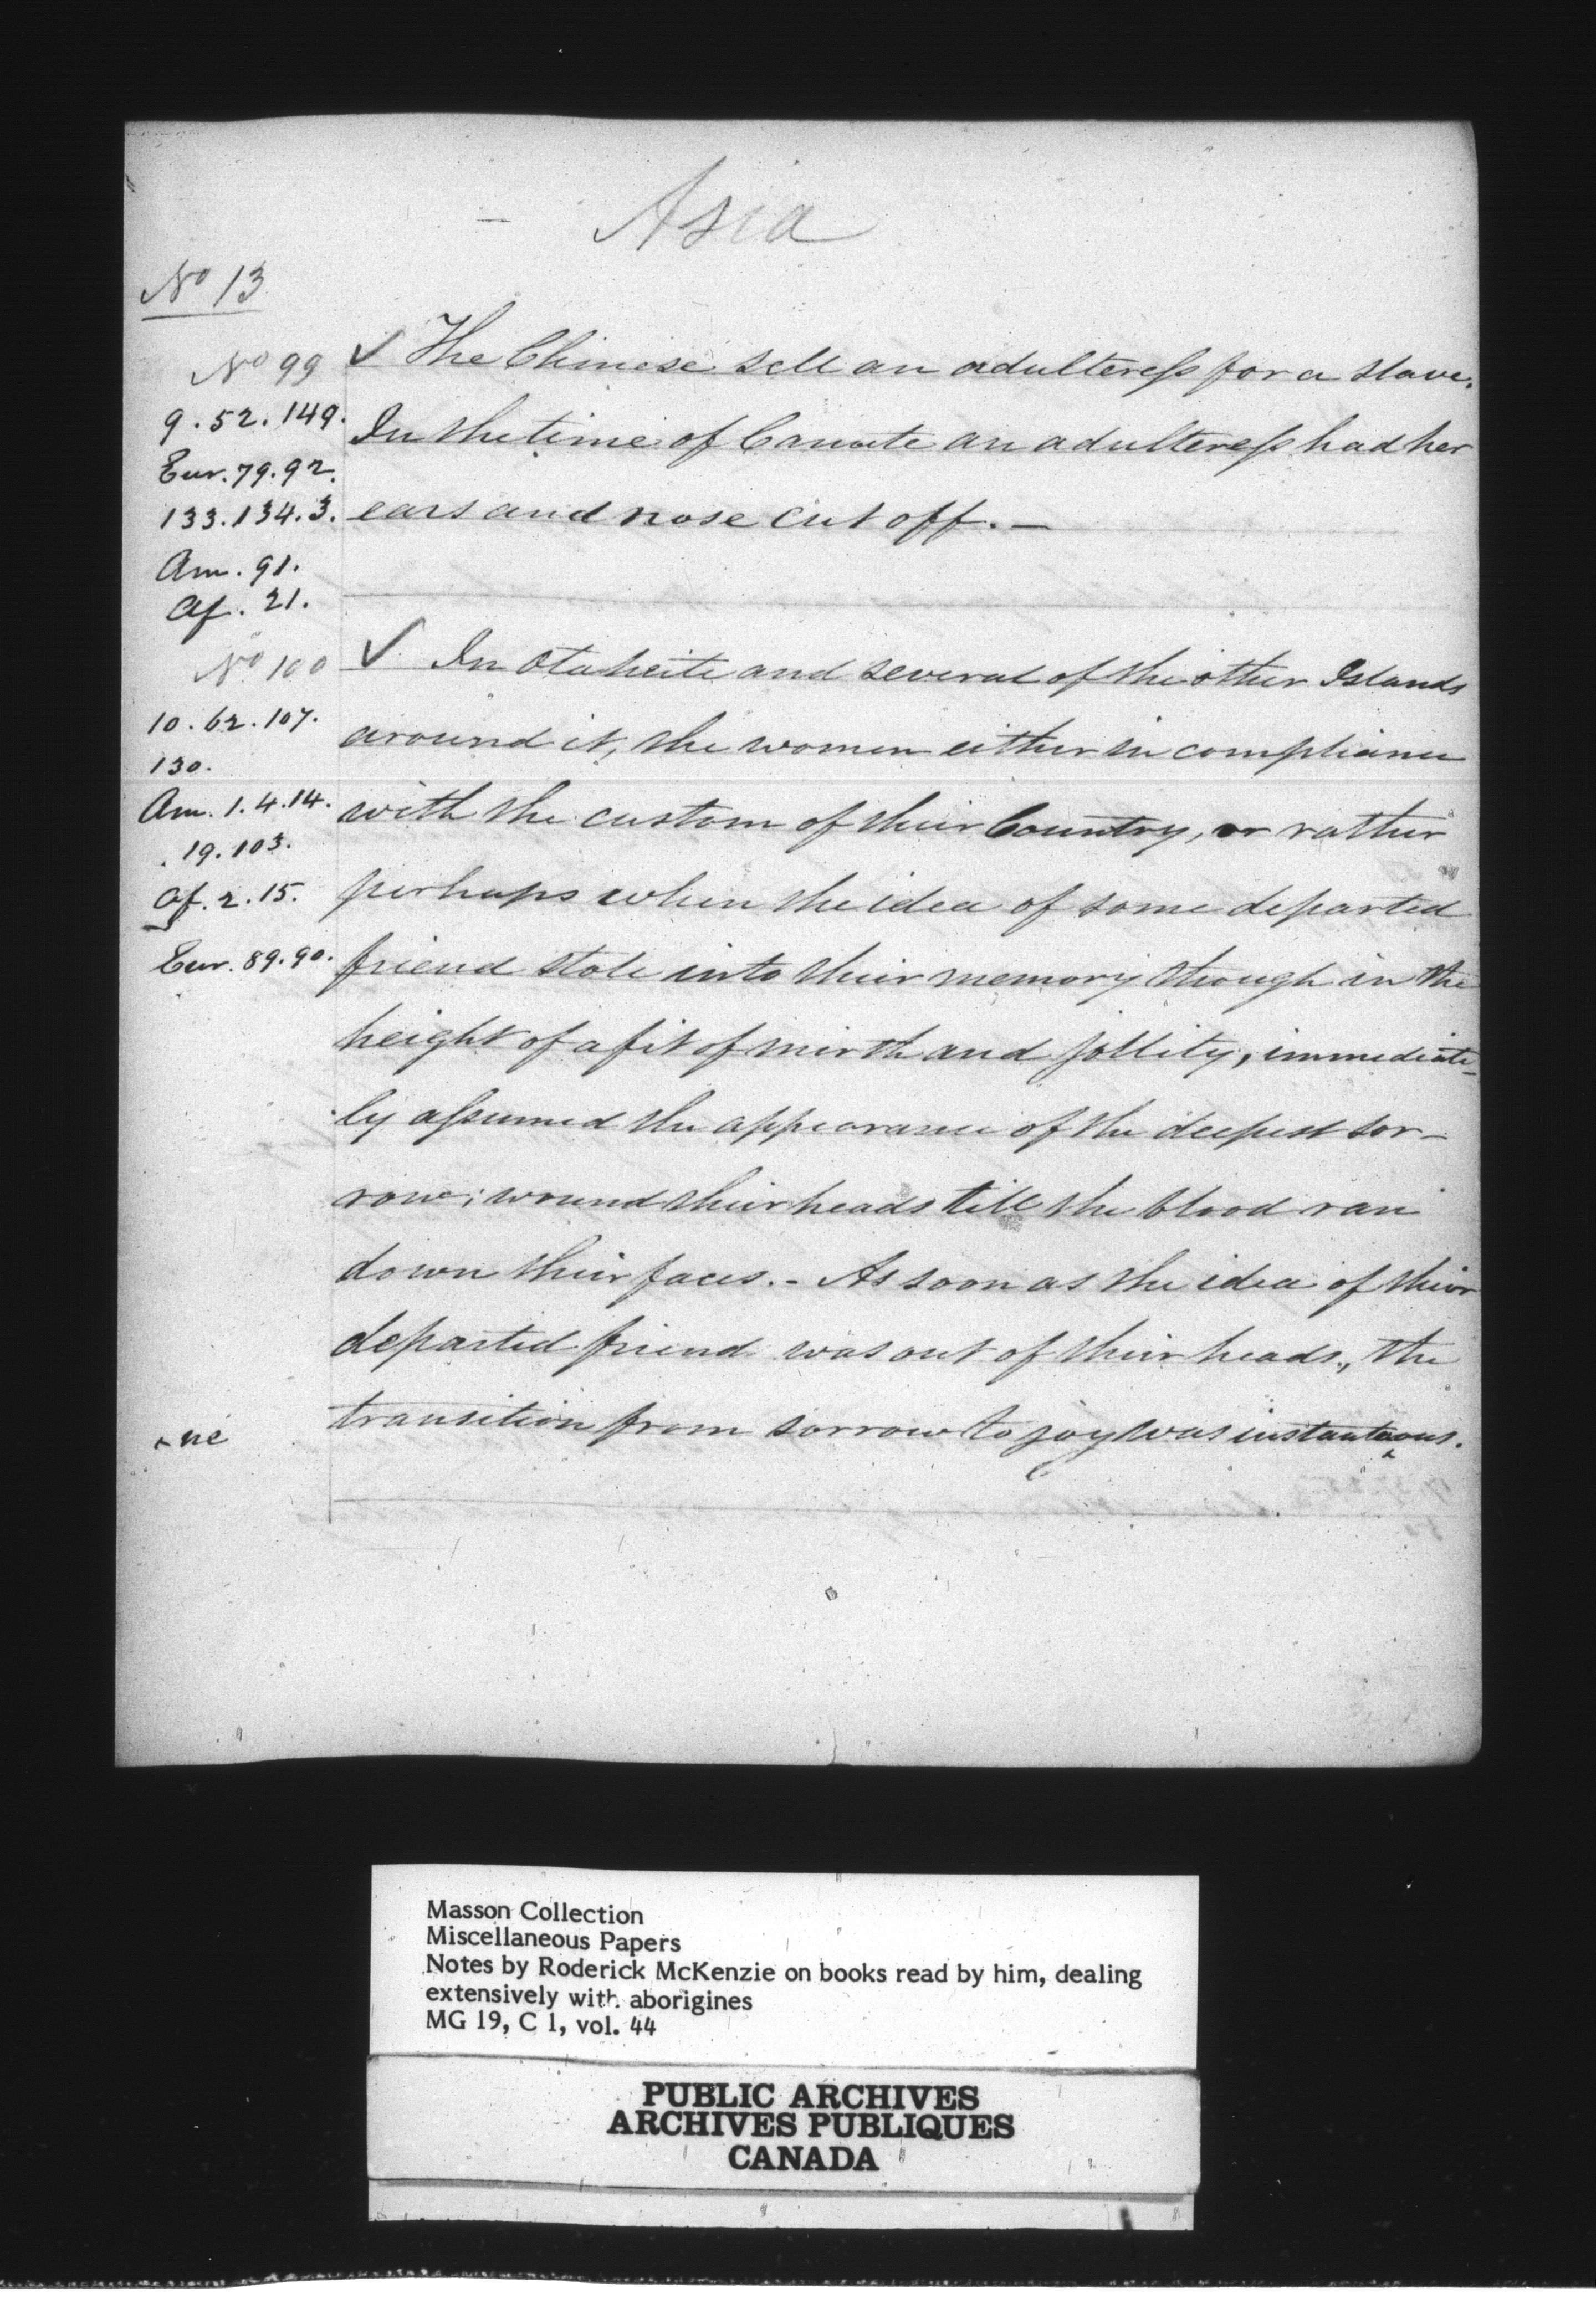 Asia
No 13
No 99
9. 52. 149.
Eur. 79. 92.
133. 134. 3.
Am. 91.
Af. 21.
✓ The Chinese sell an adulteress for a slave.
In the time of Canute an adulteress had her
ears and nose cut off. —
No 100
10. 62. 107.
130.
Am. 1. 4. 14.
19. 103.
Af. 2. 15.
Eur. 89. 90.
✓ In Otaheite and several of the other Islands
around it, the women either in compliance
with the custom of their Country, or rather
perhaps when the idea of some departed
friend stole into their memory though in the
height of a fit of mirth and jollity, immediate-
ly assumed the appearance of the deepest sor-
row; wound their heads till the blood ran
down their faces. - As soon as the idea of their
departed friend was out of their heads, the
transition from sorrow to joy was instantaous.
^ ne
Masson Collection
Miscellaneous Papers
Notes by Roderick McKenzie on books read by him, dealing
extensively with aborigines
MG 19, C 1, vol. 44
PUBLIC ARCHIVES
ARCHIVES PUBLIQUES
CANADA